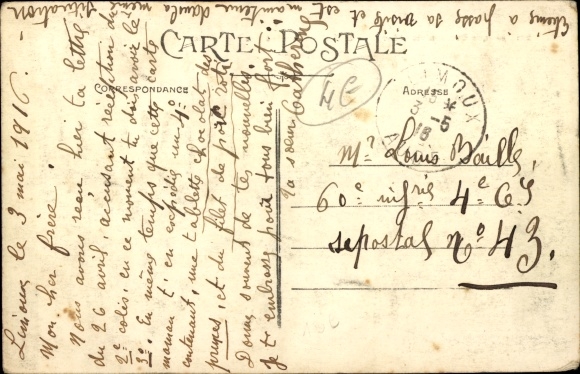 CARTE POSTALE
CORRESPONDANCE
ADRESSE
4€
LIMOUX
Limoux le 3 mai 1916.
Mon cher frère.
Nous avons reçu hier ta lettre
du 26 avril, accusant réception du
2e colis, en ce moment tu dois avoir le
3e. En même temps que cette carte
maman t'en expédie un 4e
contenant, une tablette chocolat des
prunes, et du filet de porc rôti.
Donne souvent de tes nouvelles.
Je t'embrasse pour tous bien fort.
Ta soeur Catherine
Etienne à passé sa visite et est
maintenu dans la même situation.
Mr Louis Baille,
60e infrie 4e Cie
Sepostal No 43.